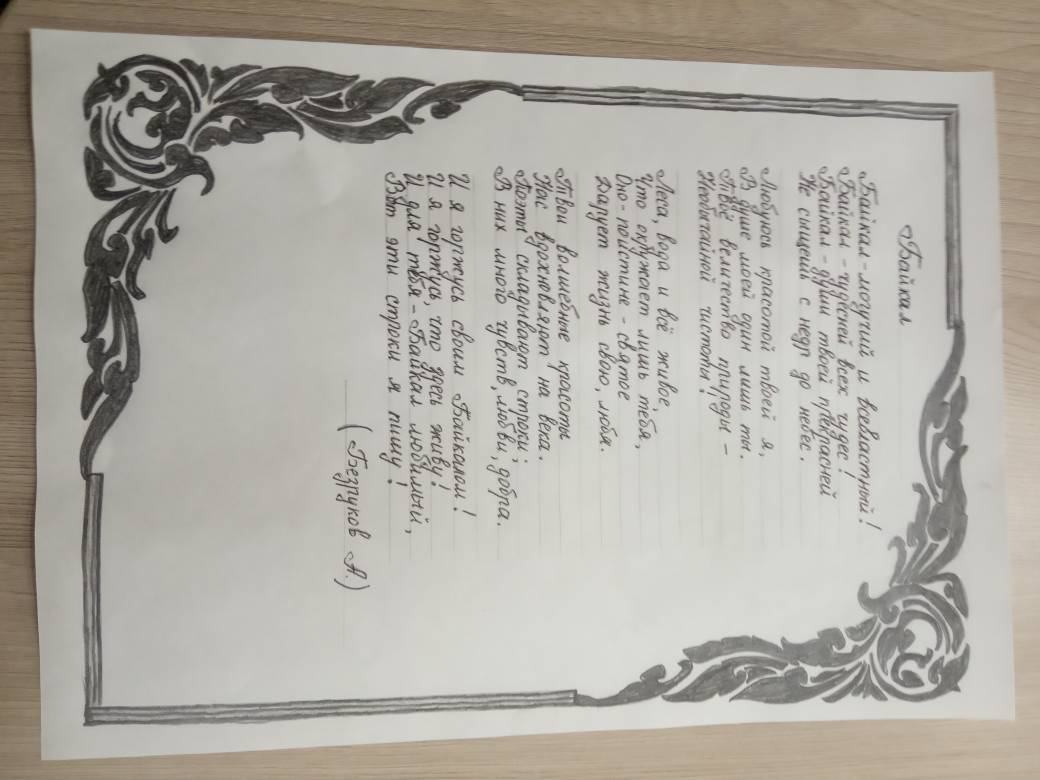 Байкал
Байкал - могучий и всевластный!
Байкал - чудесней всех чудес!
Байкал - души твоей прекрасней
Не сыщешь с недр до небес.
Любуюсь красотой твоей я,
В душе моей один лишь ты.
Твоё величество природы -
Необычайной чистоты!
Леса, вода и всё живое,
Что окружает лишь тебя,
Оно - поистине - святое
Дарует жизнь свою, любя.
Твои волшебные красоты
Нас вдохновляют на века.
Поэты складывают строки;
В них много чувств, любви, добра.
И я горжусь своим Байкалом!
И я горжусь, что здесь живу!
И для тебя - Байкал любимый,
Вот эти строки я пишу!
(Безруков А.)